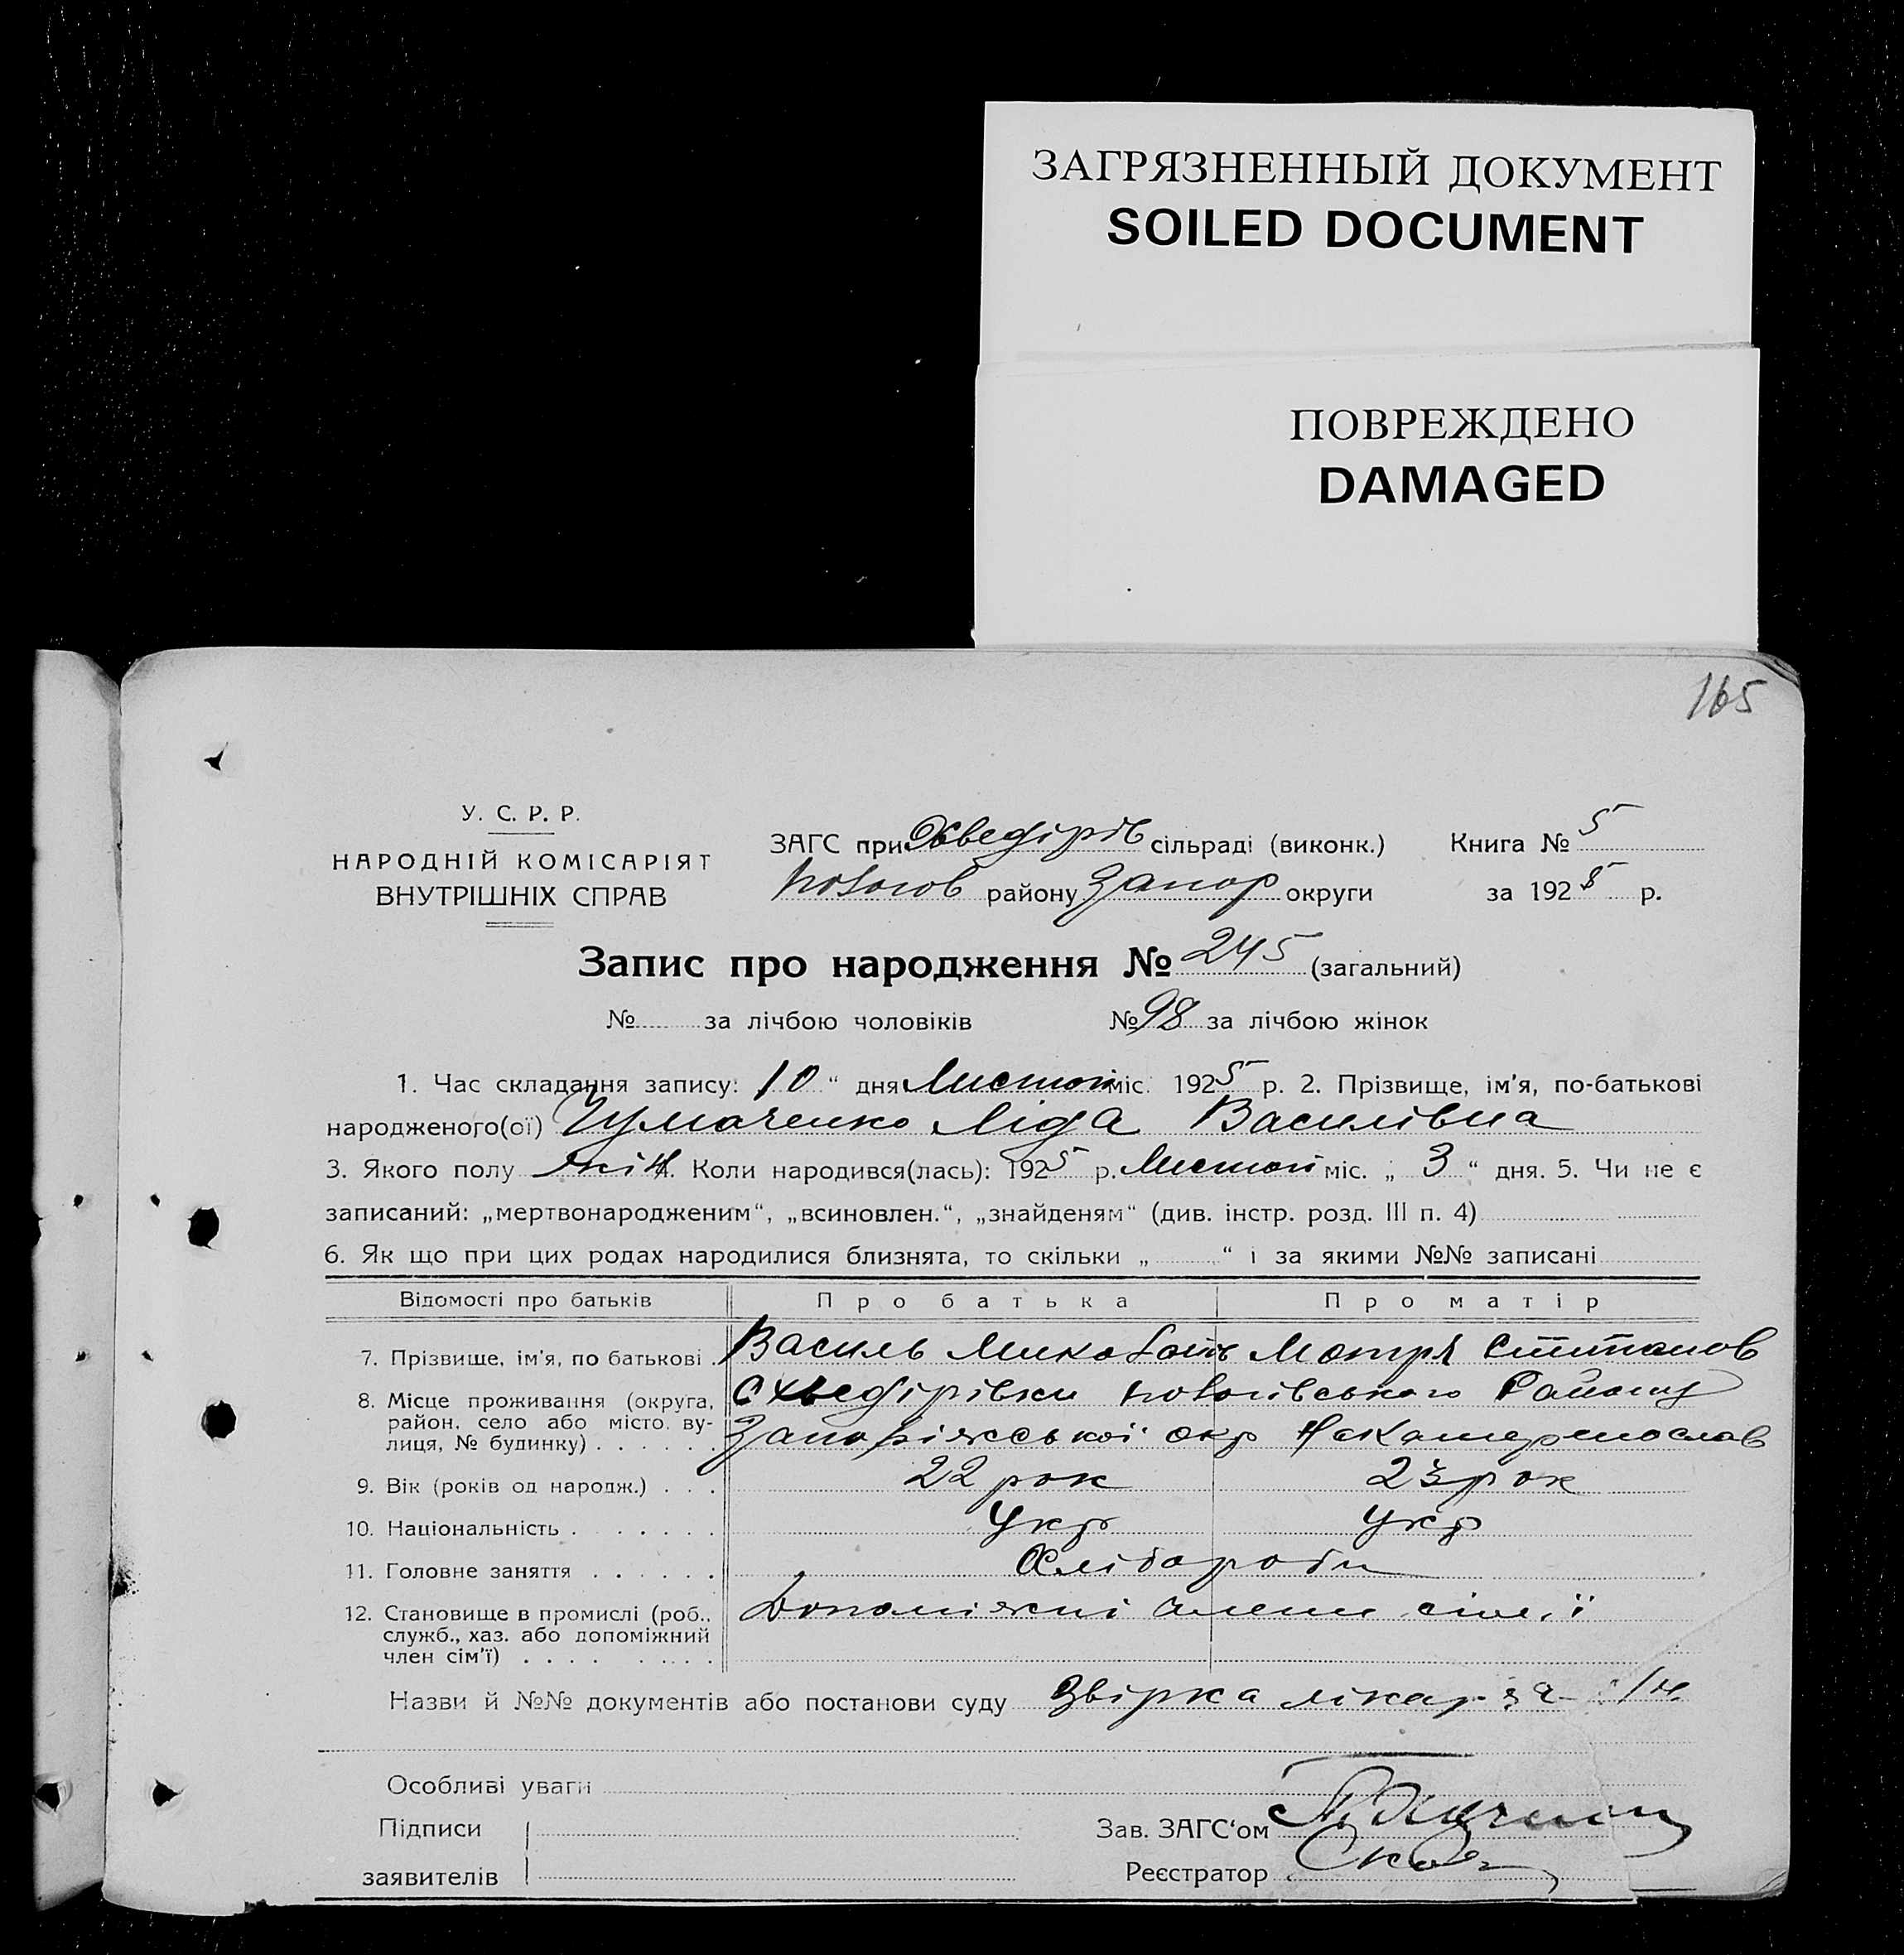 ЗАГРЯЗНЕННЫЙ ДОКУМЕНТ
SOILED DOCUMENT
ПОВРЕЖДЕНО
DAMAGED
165
У. С. Р. Р.
НАРОДНІЙ КОМІСАРІЯТ
ВНУТРІШНІХ СПРАВ
ЗАГС при Хведірів сільраді (виконк.)
району Запор округи
Книга № 5
за 1925 р.
Запис про народження № 245 (загальний)
№ за лічбою чоловіків № 98 за лічбою жінок
1. Час складання запису: 10 “ дня Листоп міс. 1925 р. 2. Прізвище, ім’я, по-батькові
народженого(ої) Чумаченко Ліда Василівна
3. Якого полу жін 4. Коли народився(лась): 1925 р. Листоп міс. „ 3 “ дня. 5. Чи не є
записаний: „мертвонародженим“, „всиновлен.“, „знайденям“ (див. інстр. розд. III п. 4)
6. Як що при цих родах народилися близнята, то скільки „ “ і за якими №№ записані
Відомості про батьків Про батька Про матір
7. Прізвище, ім’я, по батькові . Василь Мотря
8. Місце проживання (округа, району
район. село або місто. ву-
лиця, № будинку) . . . . . . Запоріжської окр
9. Вік (років од народж.) . . . 22 рок 23 рок
10. Національність . . . . . . . Укр Укр
11. Головне заняття . . . . . . Хлібороби
12. Становище в промислі (роб., Допоміжні члени сім'ї
служб., хаз. або допоміжний
член сім’ї) . . . . . . . .
Назви й №№ документів або постанови суду звірка
Особливі уваги
Підписи
заявителів
Зав. ЗАГС‘ом
Реєстратор